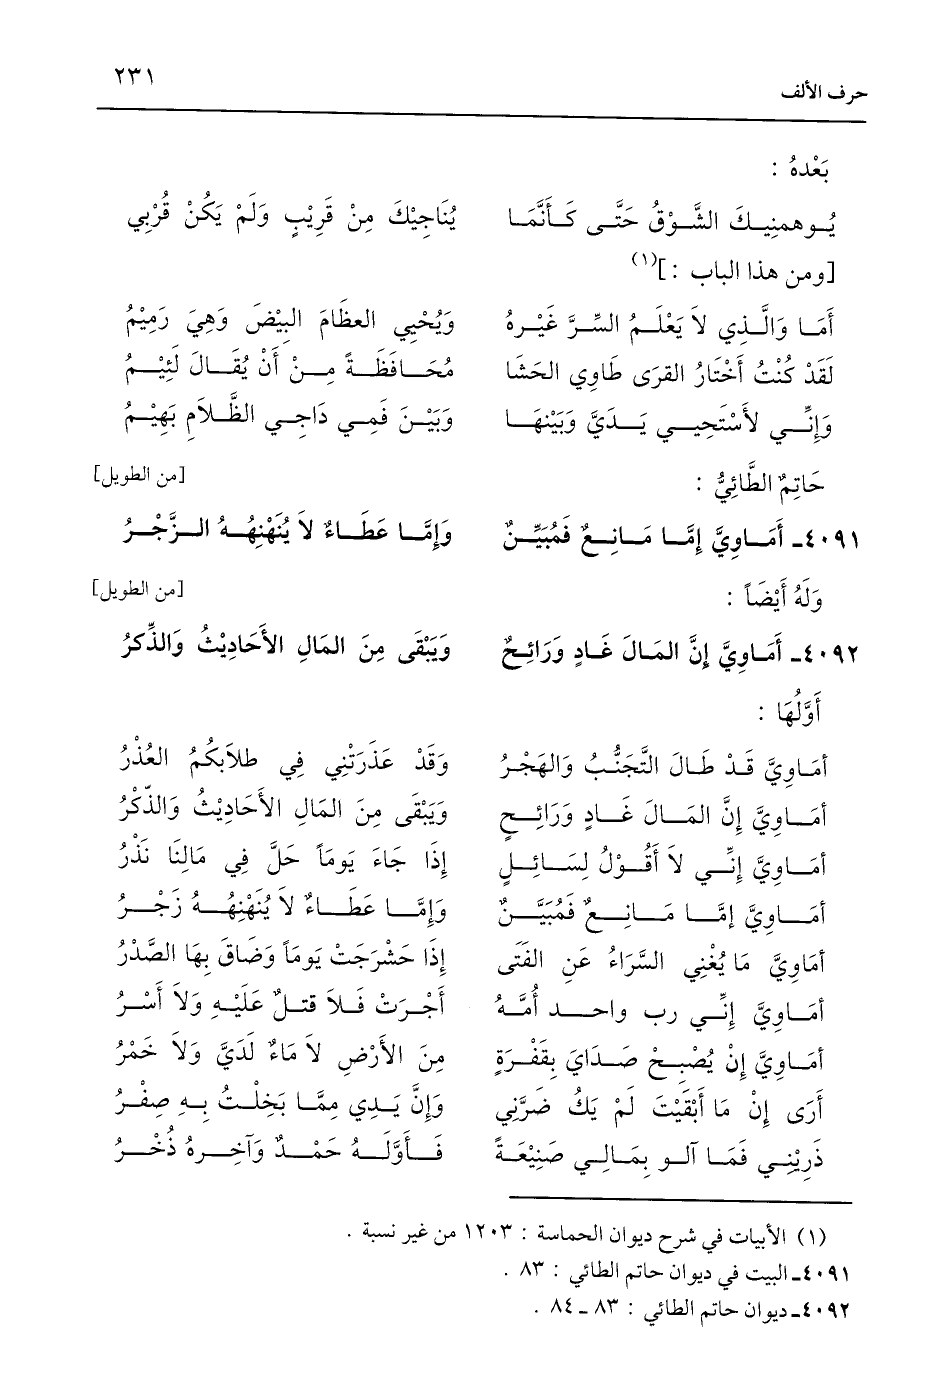 حرف الألف ٢٣١
بَعْدهُ :
يُوهمنِيكَ الشَّوْقُ حَتَّى كَأَنَّمَا يُنَاجِيْكَ مِنْ قَرِيْبٍ وَلَمْ يَكُنْ قُرْبي
[ومن هذا الباب :](١)
أَمَا وَالَّذِي لاَ يَعْلَمُ السِّرَّ غَيْرهُ وَيُحْيِي العظَامَ البِيْضَ وَهِيَ رَمِيْمُ
لَقَدْ كُنْتُ أَخْتَارُ القرَى طَاوِي الحَشَا مُحَافَظَةً مِنْ أَنْ يُقَالَ لَئِيْمُ
وَإِنِّي لأَسْتَحِيي يَدَيَّ وَبَيْنَهَا وَبَيْنَ فَمِي دَاجِي الظَّلاَمِ بَهِيْمُ
حَاتِمٌ الطَّائِيُّ : [من الطويل]
٤٠٩١ـ أَمَاوِيَّ إِمَّا مَانِعٌ فَمُبَيِّنٌ وَإِمَّا عَطَاءٌ لاَ يُنَهْنِهُهُ الزَّجْرُ
وَلَهُ أَيْضَاً : [من الطويل]
٤٠٩٢ـ أَمَاوِيَّ إِنَّ المَالَ غَادٍ وَرَائِحٌ وَيَبْقَى مِنَ المَالِ الأَحَادِيْثُ وَالذِّكرُ
أَوَّلُهَا :
أمَاوِيَّ قَدْ طَالَ التَّجَنُّبُ وَالهَجْرُ وَقَدْ عَذَرَتْنِي فِي طلاَبكُمُ العُذْرُ
أمَاوِيَّ إِنَّ المَالَ غَادٍ وَرَائِحٍ وَيَبْقَى مِنَ المَالِ الأَحَادِيْثُ وَالذّكْرُ
أمَاوِيَّ إِنِّي لاَ أَقُوْلُ لِسَائِلٍ إِذَا جَاءَ يَوماً حَلَّ فِي مَالِنَا نَذْرُ
أمَاوِيَّ إمَّا مَانِعٌ فَمُبَيَّنٌ وَإِمَّا عَطَاءٌ لاَ يُنَهْنِهُهُ زَجْرُ
أمَاوِيَّ مَا يُغْنِي السَّرَاءُ عَنِ الفَتَى إِذَا حَشْرَجَتْ يَوماً وَضَاقَ بِهَا الصَّدْرُ
أمَاوِيَّ إِنِّي رب واحد أُمّهُ أَجْرَتْ فَلاَ قتلٌ عَلَيْهِ وَلاَ أَسْرُ
أمَاوِيَّ إِنْ يُصْبِحْ صَدَايَ بِقَفْرَةٍ مِنَ الأَرْضِ لاَ مَاءٌ لَدَيَّ وَلاَ خَمْرُ
أَرَى إِنْ مَا أَبْقَيْتَ لَمْ يَكُ ضَرَّنِي وَإِنَّ يَدِي مِمَّا بَخِلْتُ بِهِ صِفْرُ
ذَرِيْنِي فَمَا آلو بِمَالِي صَنِيْعَةً فَأَوَّلهُ حَمْدٌ وَآخِرهُ ذُخْرُ
(١) الأبيات في شرح ديوان الحماسة : ١٢٠٣ من غير نسبة .
٤٠٩١ـ البيت في ديوان حاتم الطائي : ٨٣ .
٤٠٩٢ـ ديوان حاتم الطائي : ٨٣ ـ ٨٤ .